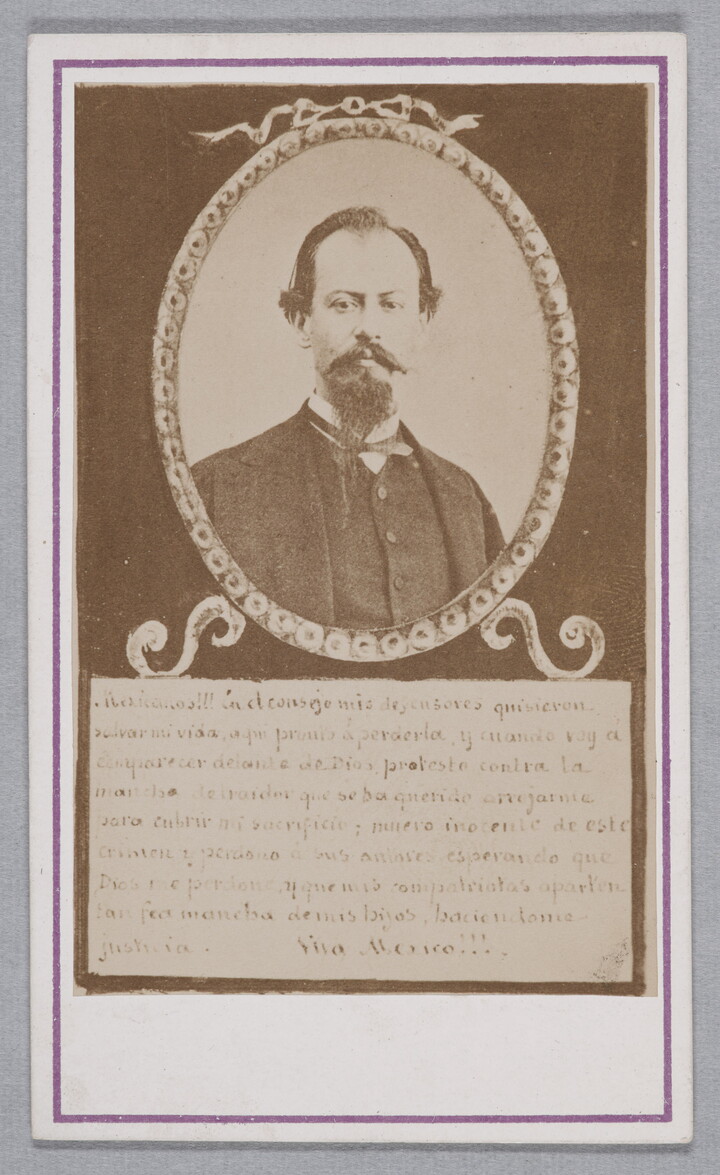 Mexicanos!!! En el consejo mis defensores quisieron
salvar mi vida, aqui pronto á perderla, y cuando voy á
comparecer delante de Dios, protesto contra la
mancha de traidor que se ha querido arrojarme
para cubrir mi sacrificio; muero inocente de este
crimen y perdono á sus autores esperando que
Dios me perdone, y que mis compatriotas aparten
tan fea mancha de mis hijos, haciendome
justicia. Viva Mexico!!!.